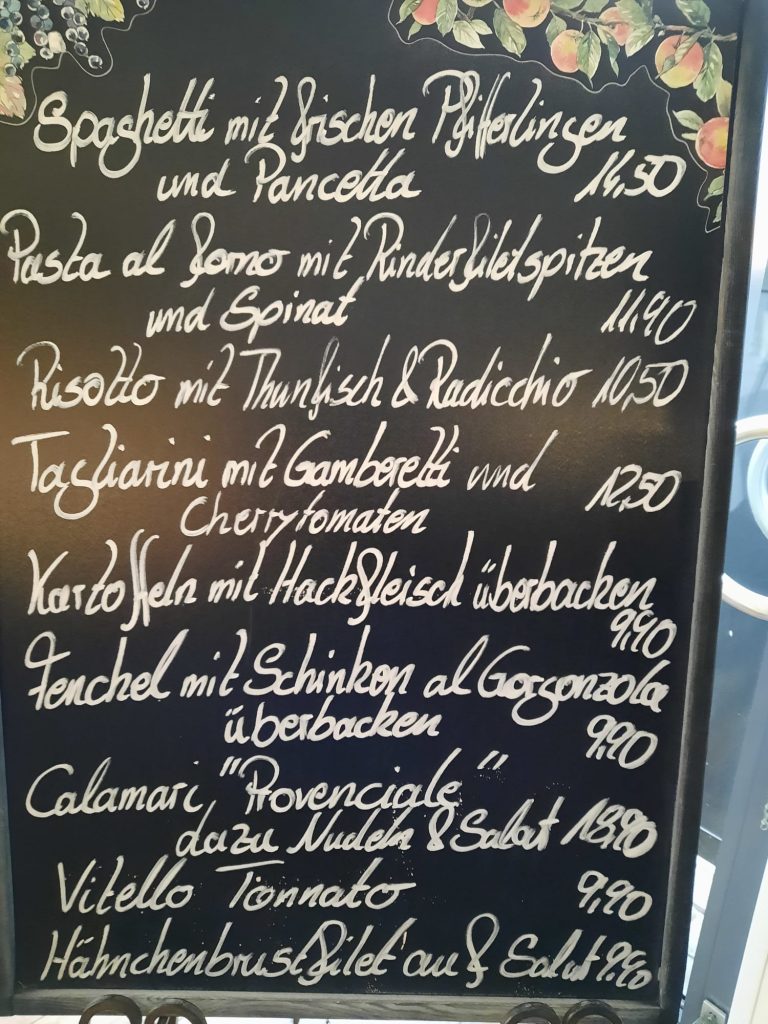 Spaghetti mit frischen Pfifferlingen
und Pancetta 14,50
Pasta al forno mit Rinderfiletspitzen
und Spinat 11,90
Risotto mit Thunfisch & Radicchio 10,50
Tagliarini mit Gamberetti und
Cherrytomaten 12,50
Kartoffeln mit Hackfleisch überbacken
9,90
Fenchel mit Schinken al Gorgonzola
überbacken 9,90
Calamari "Provenciale"
dazu Nudeln & Salat 18,90
Vitello Tonnato 9,90
Hähnchenbrustfilet auf Salat 9,90